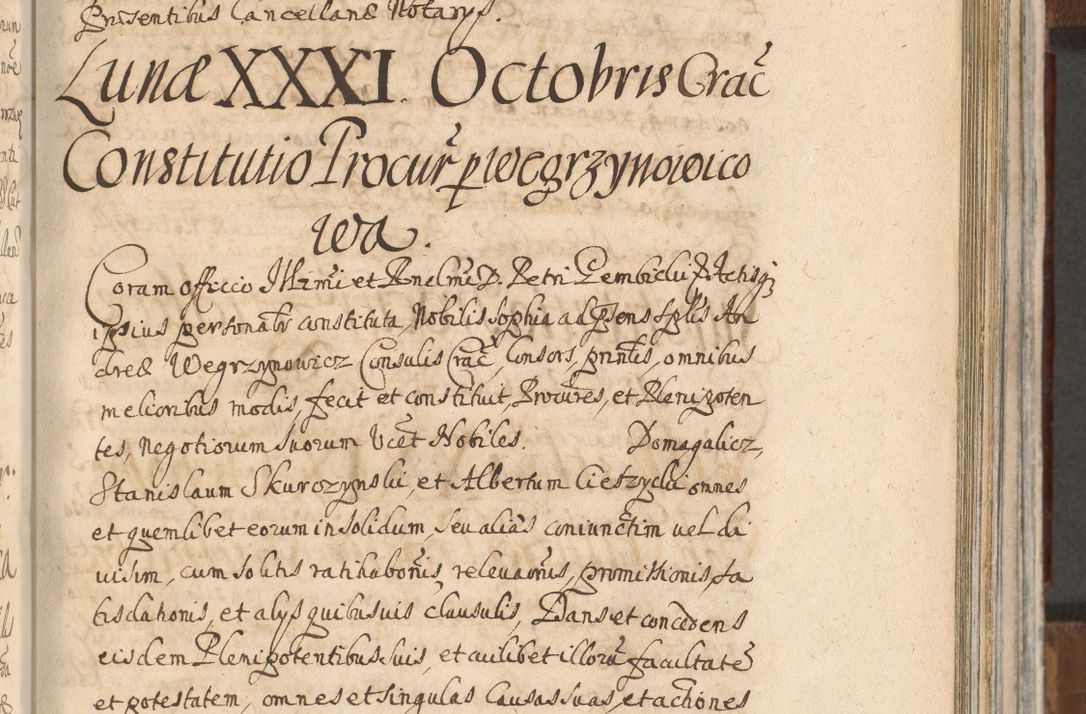 Presentibus Cancellariæ Notarys.
Lunæ XXXI. Octobris Crac
Constitutio Procur p Wegrzynowico
wa.
Coram officio Illrmi et Rndmi D. Petri Gembicki & Actisq
ipsius personalr constituta Nobilis Sophia ad psens Splis An
dreæ Wegrzynowicz Consulis Crac, Consors, prntis, omnibus
melioribus modis, fecit et constituit, Procures, et Plenipoten
tes, negotiorum suorum Vcet Nobiles. Domagalicz,
Stanislaum Skurczynski, et Albertum Cieszycki omnes
et quemlibet eorum in solidum, seu alias coniunctim uel di
uisim, cum solitis ratihabonis, releuaonis, promissionis, sa
tisdationis, et alys quibusuis clausulis, Dans et concedens
eisdem Plenipotentibus suis, et cuilibet illoru facultate
et potestatem, omnes et singulas Causas suas, et actiones